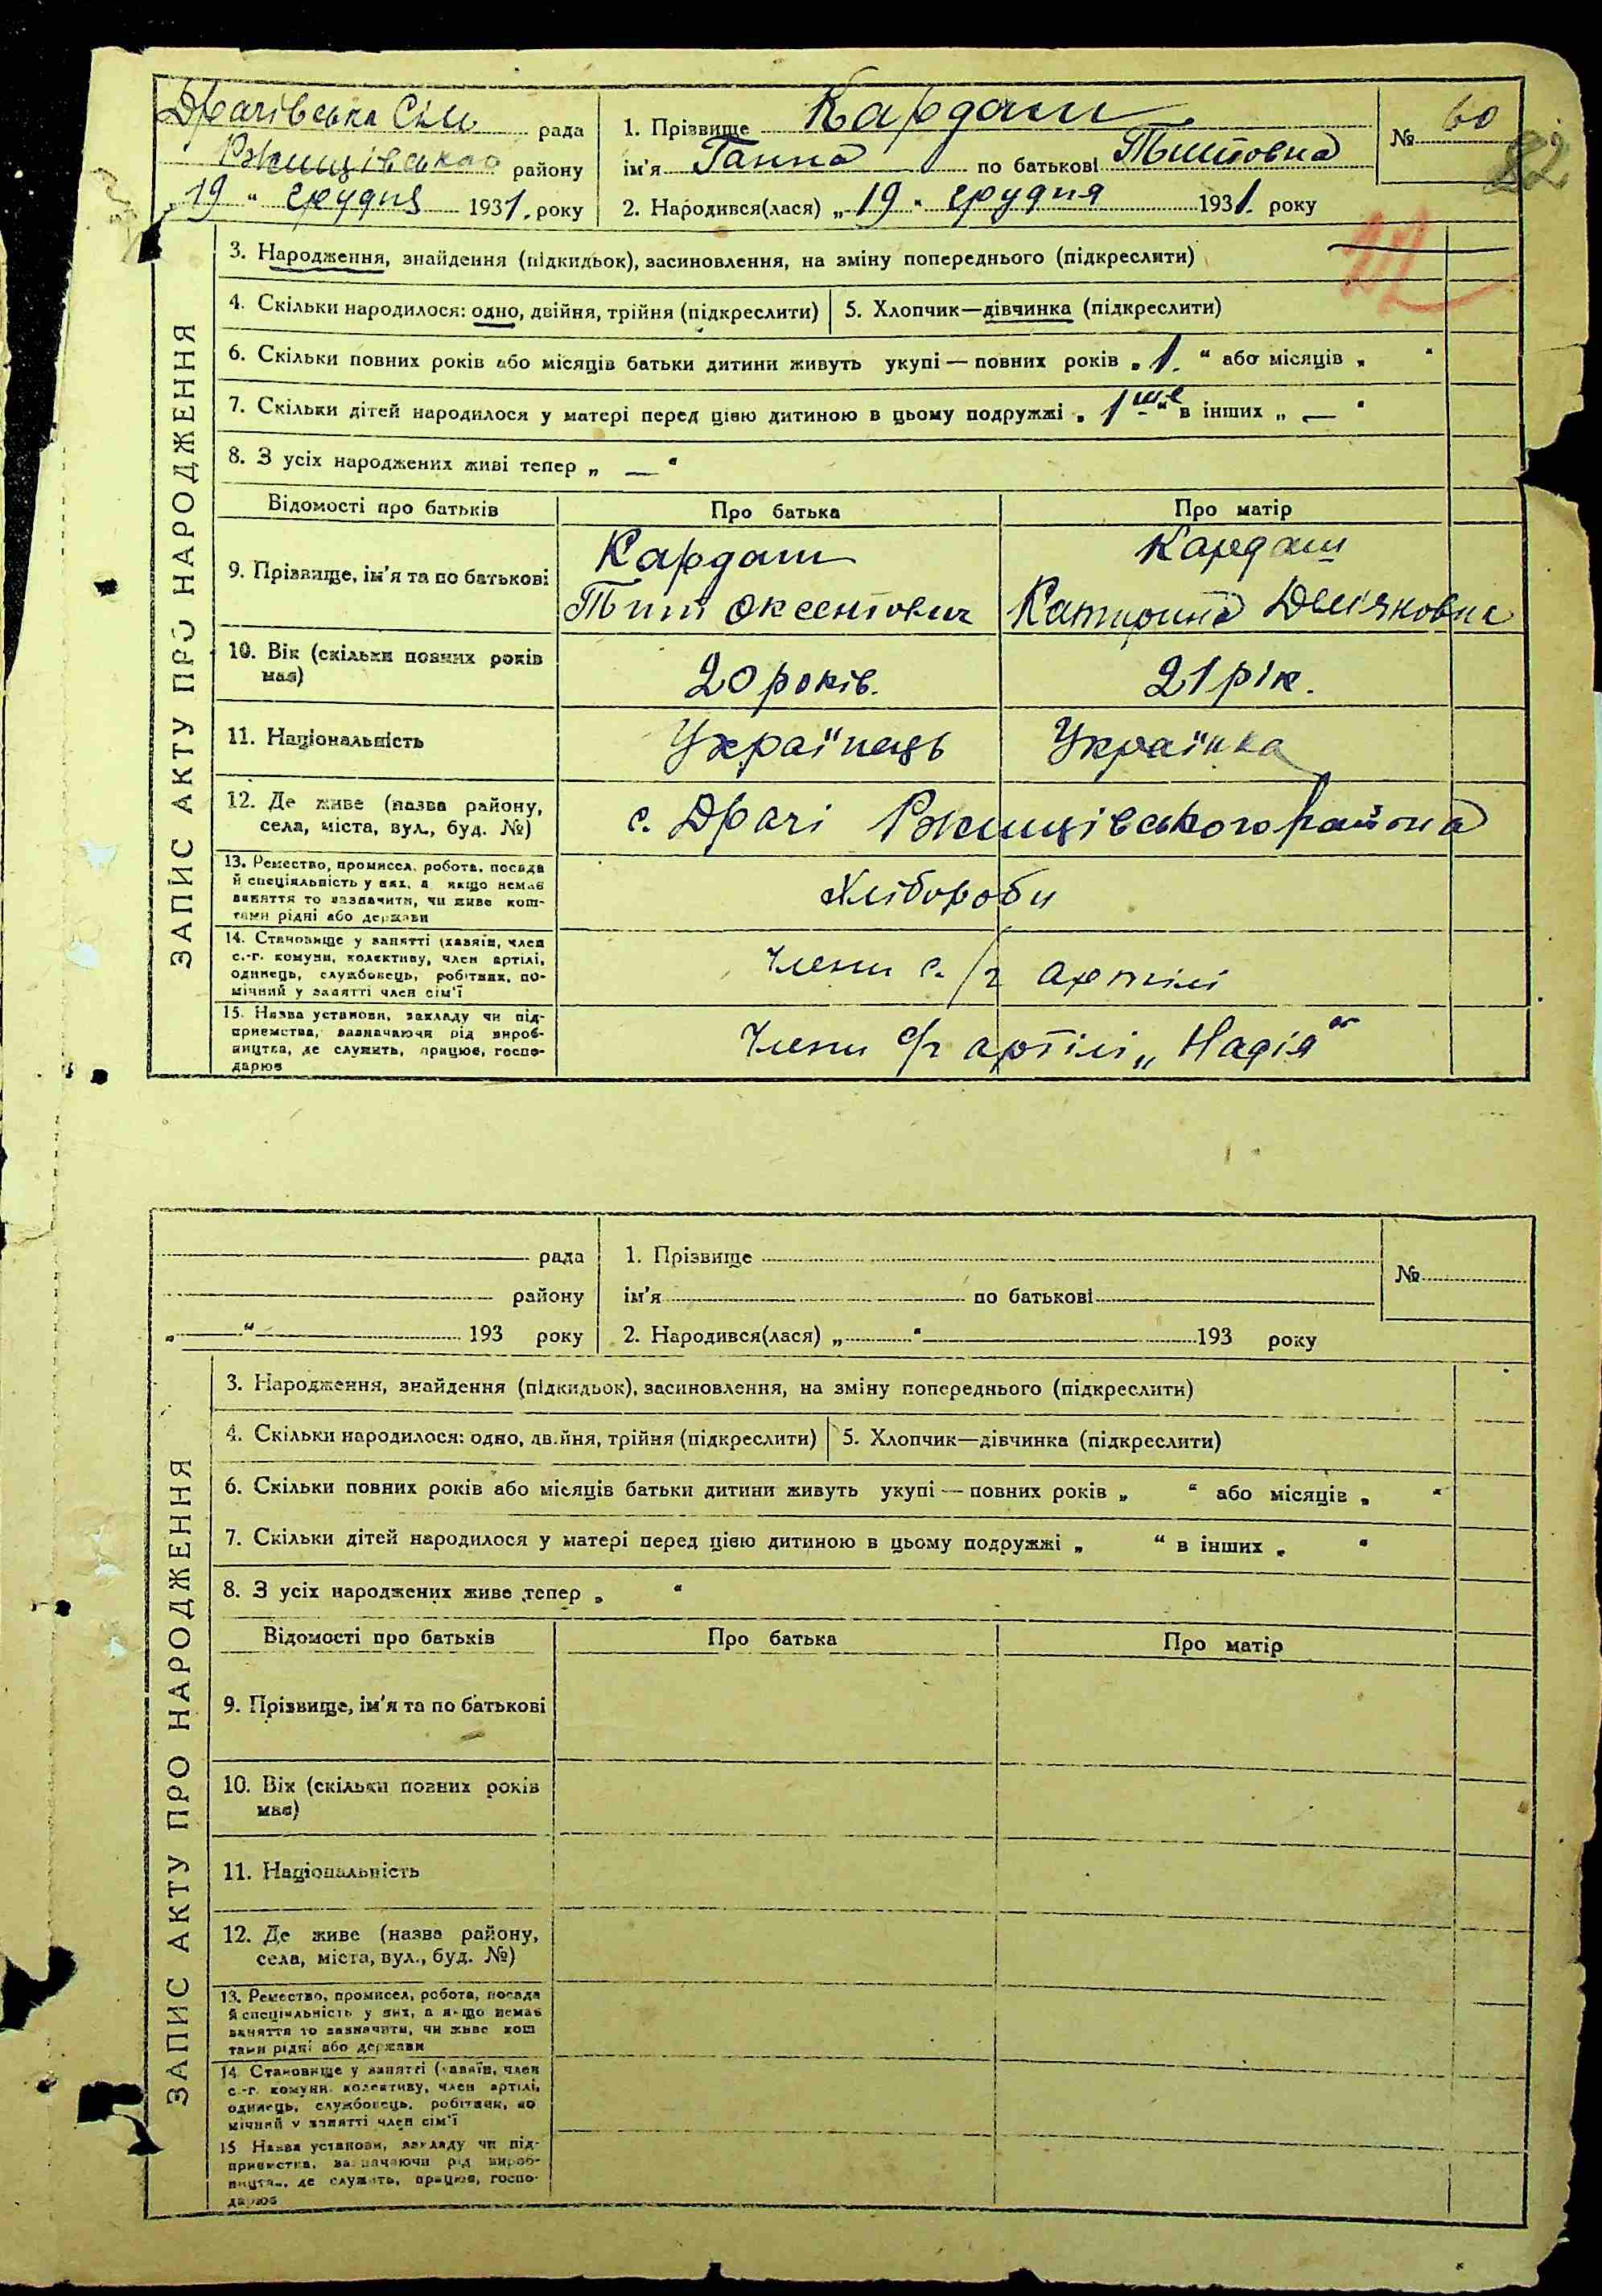 Драчівська Сіль рада
Ржищівського району
„19“ грудня 1931. року
1. Прізвище Кардаш
ім'я Ганна по батькові Титовна
2. Народився(лася) „19“ грудня 1931. року
№ 60
82
ЗАПИС АКТУ ПРО НАРОДЖЕННЯ
3. Народження, знайдення (підкидьок), засиновлення, на зміну попереднього (підкреслити)
4. Скільки народилося: одно, двійня, трійня (підкреслити)
5. Хлопчик—дівчинка (підкреслити)
6. Скільки повних років або місяців батьки дитини живуть укупі — повних років „1.“ або місяців „ “
7. Скільки дітей народилося у матері перед цією дитиною в цьому подружжі „1ше“ в інших „—“
8. З усіх народжених живі тепер „—“
Відомості про батьків Про батька Про матір
9. Прізвище, ім'я та по батькові
Кардаш Кардаш
Тит Оксентович Катирина Демяновна
10. Вік (скільки повних років має)
20 років. 21 рік.
11. Національність Українець Українка
12. Де живе (назва району, села, міста, вул., буд. №)
с. Драчі Ржищівського района
13. Ремество, промисел, робота, посада
й спеціяльність у них, а якщо немає
заняття то зазначити, чи живе кош-
тами рідні або держави
Хлібороби
14. Становище у занятті (хазяїн, член
с.-г. комуни, колективу, член артілі,
одинець, службовець, робітник, по-
мічний у занятті член сім'ї
Члени с./г артілі
15. Назва установи, закладу чи під-
приємства, зазначаючи рід вироб-
ництва, де служить, працює, госпо-
дарює
Члени с/г артілі „Надія“
рада
району
„ “ 193 року
1. Прізвище
ім'я по батькові
2. Народився(лася) „ “ 193 року
№
ЗАПИС АКТУ ПРО НАРОДЖЕННЯ
3. Народження, знайдення (підкидьок), засиновлення, на зміну попереднього (підкреслити)
4. Скільки народилося: одно, двійня, трійня (підкреслити)
5. Хлопчик—дівчинка (підкреслити)
6. Скільки повних років або місяців батьки дитини живуть укупі — повних років „ “ або місяців „ “
7. Скільки дітей народилося у матері перед цією дитиною в цьому подружжі „ “ в інших „ “
8. З усіх народжених живе тепер „ “
Відомості про батьків Про батька Про матір
9. Прізвище, ім'я та по батькові
10. Вік (скільки повних років
має)
11. Національність
12. Де живе (назва району,
села, міста, вул., буд. №)
13. Ремество, промисел, робота, посада
й спеціяльність у них, а якщо немає
заняття то зазначити, чи живе кош
тами рідні або держави
14. Становище у занятті (хазяїн, член
с.-г. комуни, колективу, член артілі,
одинець, службовець, робітник, по
мічний у занятті член сім'ї
15. Назва установи, закладу чи під-
приємства, зазначаючи рід вироб-
ництва, де служить, працює, госпо-
дарює